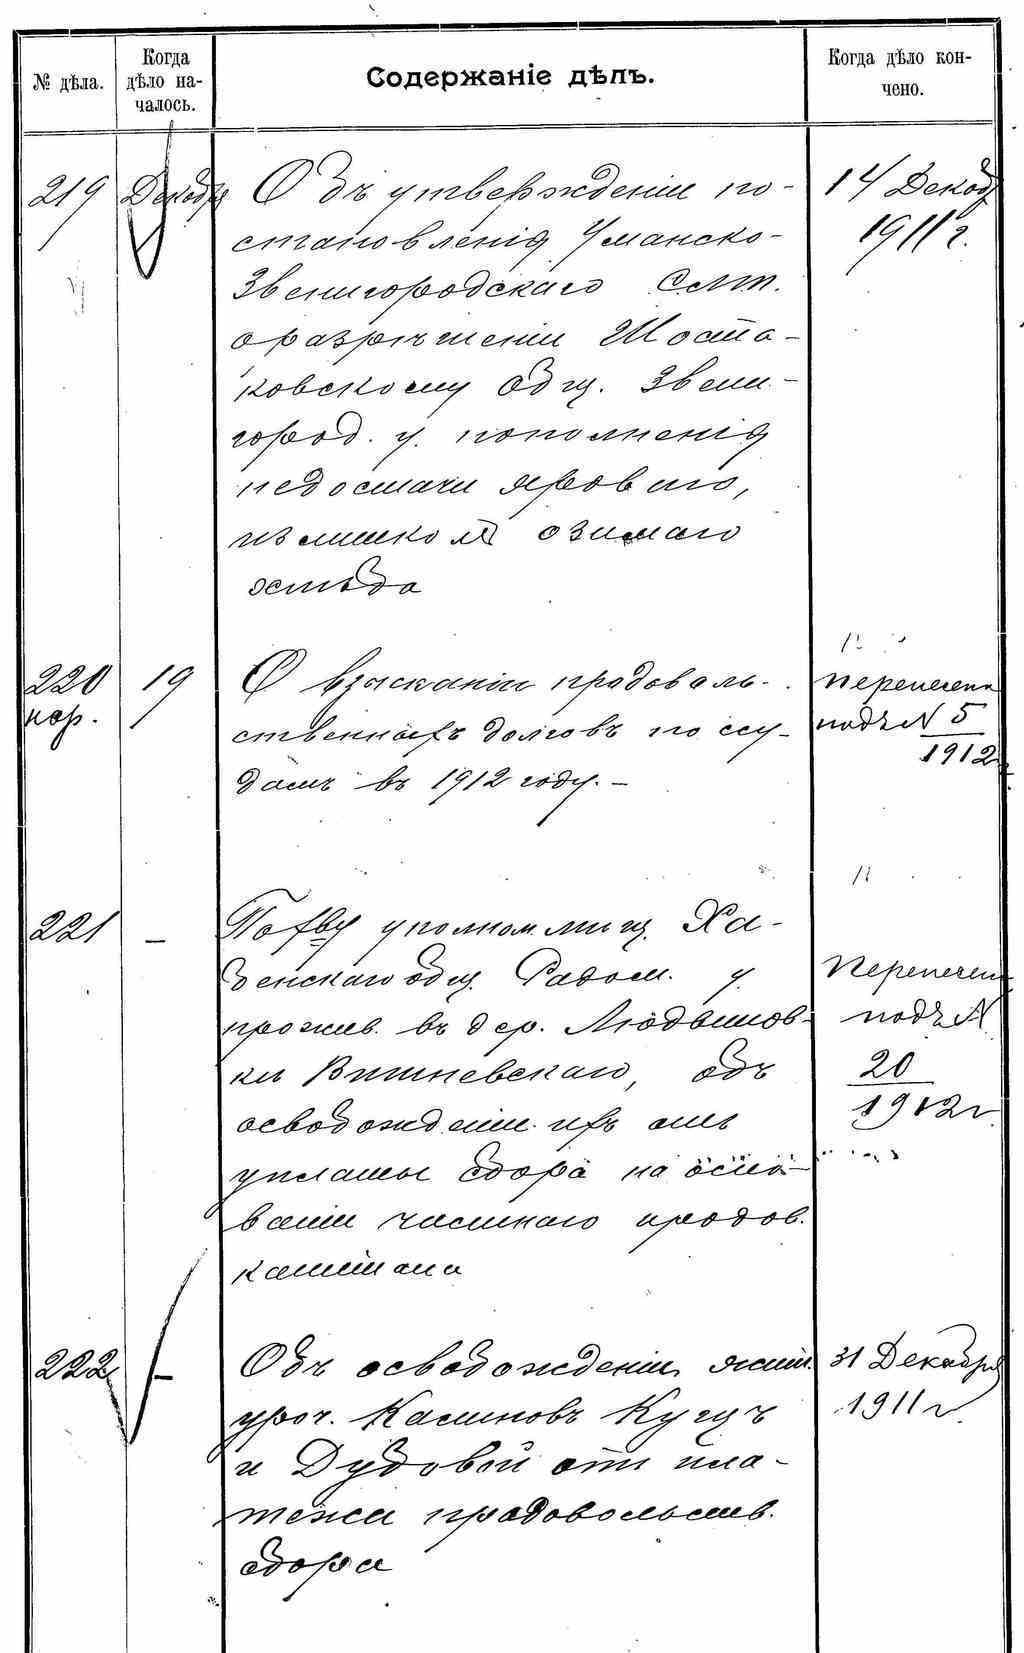 № дѣла.
Когда
дѣло на-
чалось.
Содержаніе дѣлъ.
Когда дѣло кон-
чено.
219
Декабря
Объ утвержденіи по-
становленія Уманско-
Звенигородскаго Съѣзда
о разрѣшеніи Шоста-
ковскому общ. Звени-
город. у. пополненія
недостачи яроваго,
излишкомъ озимаго
хлѣба
14 Декаб
1911 г.
220
кор.
19
О взысканіи продоволь-
ственныхъ долговъ по ссу-
дамъ въ 1912 году. –
Перенесена
подъ № 5
1912
221
–
По уполном. мѣщ. Ха-
бенскаго общ. Радом. у.
прожив. въ дер. Людвинов-
кѣ Вишневскаго, объ
освобожденіи ихъ отъ
уплаты сбора на осно-
ваніи частнаго продов.
капитала
Перенесена
подъ №
20
1912 г
222
–
Объ освобожденіи жит.
уроч. Калиновъ Кущъ
и Дудовой отъ пла-
тежа продовольств.
сбора
31 Декабря
1911 г.